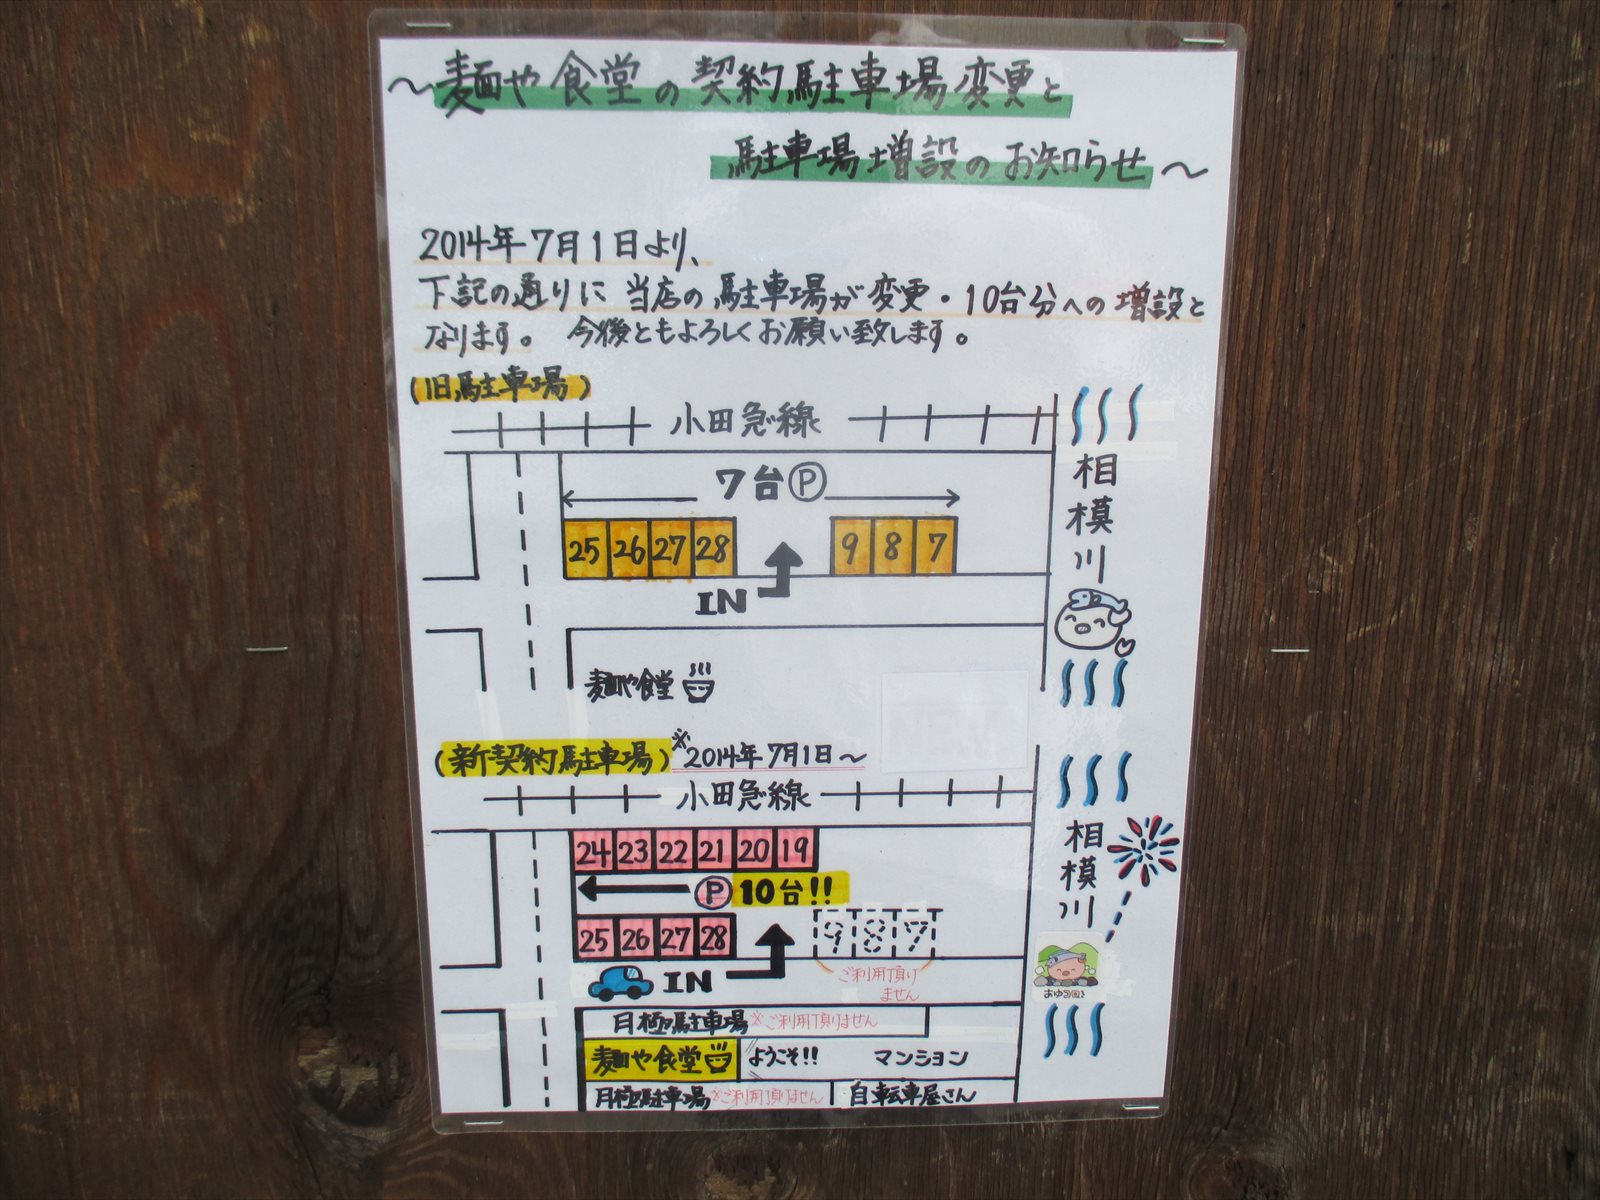 ～麺や食堂の契約駐車場変更と
駐車場増設のお知らせ～
2014年7月1日より、
下記の通りに当店の駐車場が変更・10台分への増設と
なります。今後ともよろしくお願い致します。
(旧駐車場)
小田急線
7台Ⓟ
25 26 27 28 9 8 7
IN
相模川
麺や食堂
(新契約駐車場)※2014年7月1日～
小田急線
24 23 22 21 20 19
Ⓟ10台!!
25 26 27 28 9 8 7
IN
ご利用頂け
ません
相模川
あゆコロ
月極駐車場※ご利用頂けません
麺や食堂 ようこそ!! マンション
月極駐車場※ご利用頂けません 自転車屋さん